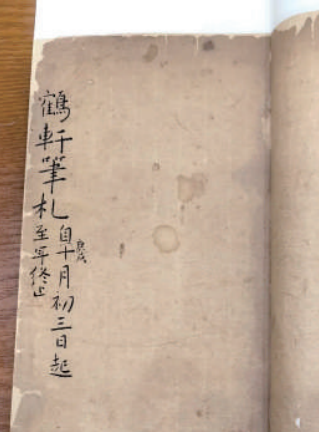 鶴軒筆札
庚戌
自十月初三日起
至年終止